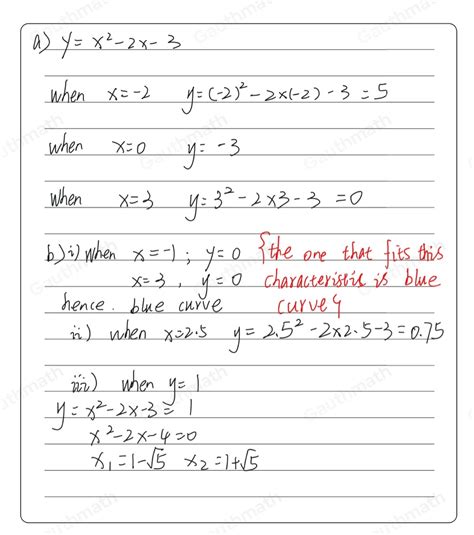 a) y = x² - 2x - 3
when x = -2 y = (-2)² - 2x(-2) - 3 = 5
when x=0 y = -3
when x=3 y = 3² - 2x3 - 3 = 0
b) i) when x = -1 ; y = 0 {the one that fits this
x = 3 , y = 0 characteristic is blue
hence . blue curve curve}
ii) when x=2.5 y = 2.5² - 2x2.5 - 3 = 0.75
iii) when y = 1
y = x² - 2x - 3 = 1
x² - 2x - 4 = 0
x₁ = 1-√5 x₂ = 1+√5
Gauthmath